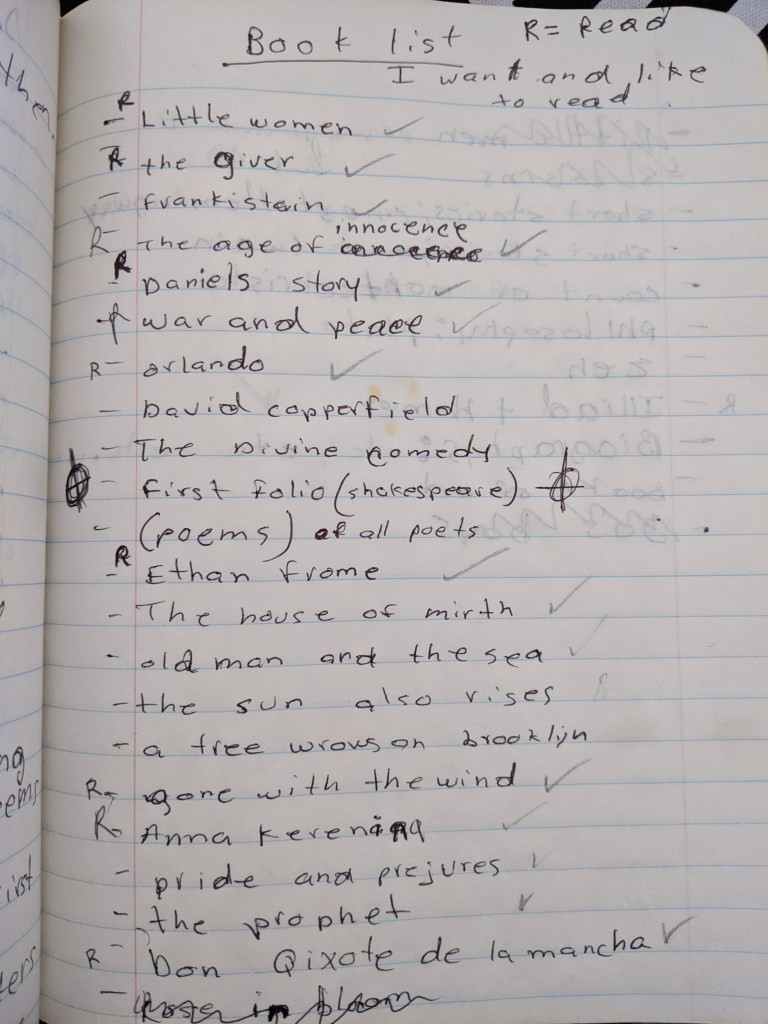 Book list R= Read
I want and like
to read.
R - Little women ✓
R the giver ✓
- frankistein ✓
innocence
R - The age of ✓
R - Daniels story ✓
war and peace ✓
R - orlando ✓
- David copperfield
- The Divine comedy
- first folio (shakespeare)
- (poems) of all poets
R - Ethan frome ✓
- The house of mirth ✓
- old man and the sea ✓
- the sun also rises
- a tree wrows on brooklijn
R - gone with the wind ✓
R - Anna kerenina ✓
- pride and prejures ✓
- the prophet ✓
R - Don Qixote de la mancha ✓
- Rose in bloom
then.
ng
ems
irst
ters